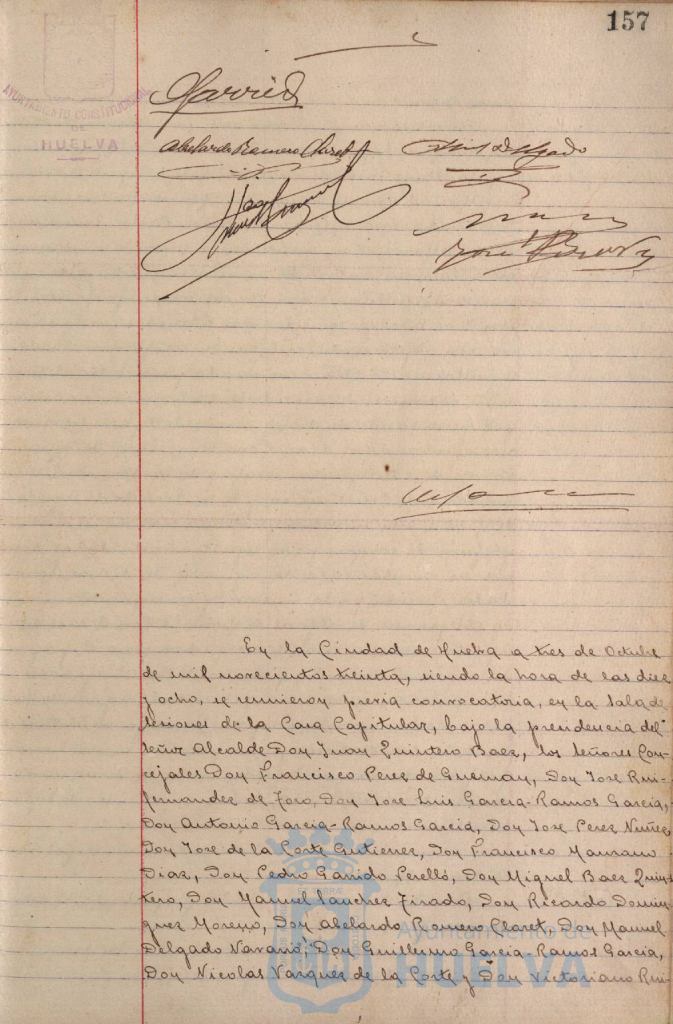 157
AYUNTAMIENTO CONSTITUCIONAL
DE
HUELVA
Garrido
Abelardo Romero Claret
Delgado
José
En la Ciudad de Huelva a tres de Octubre
de mil novecientos treinta, siendo la hora de las diez
y ocho, se reunieron previa convocatoria, en la Sala de
Sesiones de la Casa Capitular, bajo la presidencia del
Señor Alcalde Don Juan Quintero Baez, los señores Con-
cejales Don Francisco Perez de Guzman, Don Jose Rui-
fernandez de Toro, Don Jose Luis Garcia-Ramos Garcia,
Don Antonio Garcia-Ramos Garcia, Don Jose Perez Nuñez
Don Jose de la Corte Gutierrez, Don Francisco Manzano
Diaz, Don Pedro Garrido Perelló, Don Miguel Baez Quin-
tero, Don Manuel Sanchez Tirado, Don Ricardo Domin-
guez Moreno, Don Abelardo Romero Claret, Don Manuel
Delgado Navarro, Don Guillermo Garcia-Ramos Garcia,
Don Nicolas Vazquez de la Corte y Don Victoriano Rui-
Ayuntamiento de
HUELVA